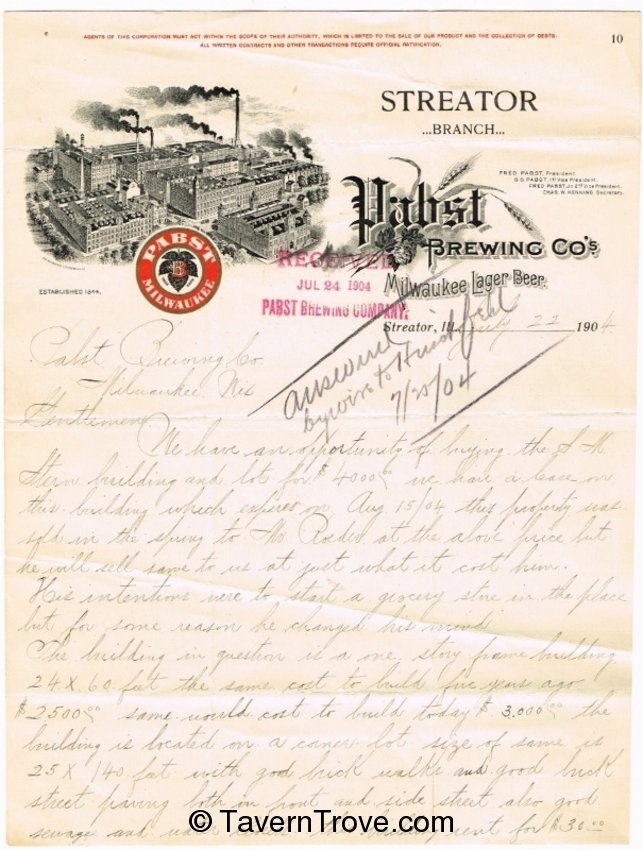 AGENTS OF THIS CORPORATION MUST ACT WITHIN THE SCOPE OF THEIR AUTHORITY, WHICH IS LIMITED TO THE SALE OF OUR PRODUCT AND THE COLLECTION OF DEBTS.
ALL WRITTEN CONTRACTS AND OTHER TRANSACTIONS REQUIRE OFFICIAL RATIFICATION.
10
STREATOR
...BRANCH...
FRED PABST, President.
G.G. PABST, 1st Vice President.
FRED PABST, Jr. 2nd Vice President.
CHAS. W. HENNING, Secretary.
Pabst
BREWING CO'S.
Milwaukee Lager Beer.
PABST
B
MILWAUKEE
ESTABLISHED 1844.
RECEIVED
JUL 24 1904
PABST BREWING COMPANY.
Streator, Ill., July 22 1904
answered
by wire to
7/25/04
Pabst Brewing Co.
Milwaukee Wis
Gentlemen
We have an opportunity of buying the S M
Stern building and lot for $4000.00 we have a lease on
this building which expires on Aug 15/04 this property was
sold in the spring to Mr Roeder at the above price but
he will sell same to us at just what it cost him.
His intentions were to start a grocery store in the place
but for some reason he changed his mind
The building in question is a one story frame building
24 x 60 feet the same cost to build five years ago
$2500.00 same would cost to build today $3,000.00 the
building is located on a corner lot size of same is
25 x 140 feet with good brick walks and good brick
street paving both on front and side street also good
sewage and water rent for $30.00
© TavernTrove.com